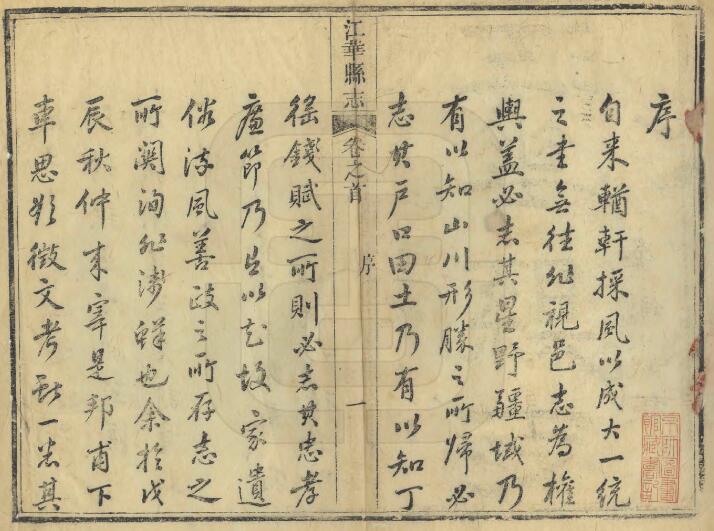 序
自来輶軒採風以成大一統
之書無往非視邑志為權
輿蓋必志其星野疆域乃
有以知山川形勝之所歸必
志其戶口田土乃有以知丁
江華縣志
卷之首
序
一
徭錢賦之所則必志其忠孝
廉節乃足以知故家遺
俗流風善政之所存志之
所關洵非淺鮮也余於戊
辰秋仲來宰是邦甫下
車思欲徵文考獻一悉其